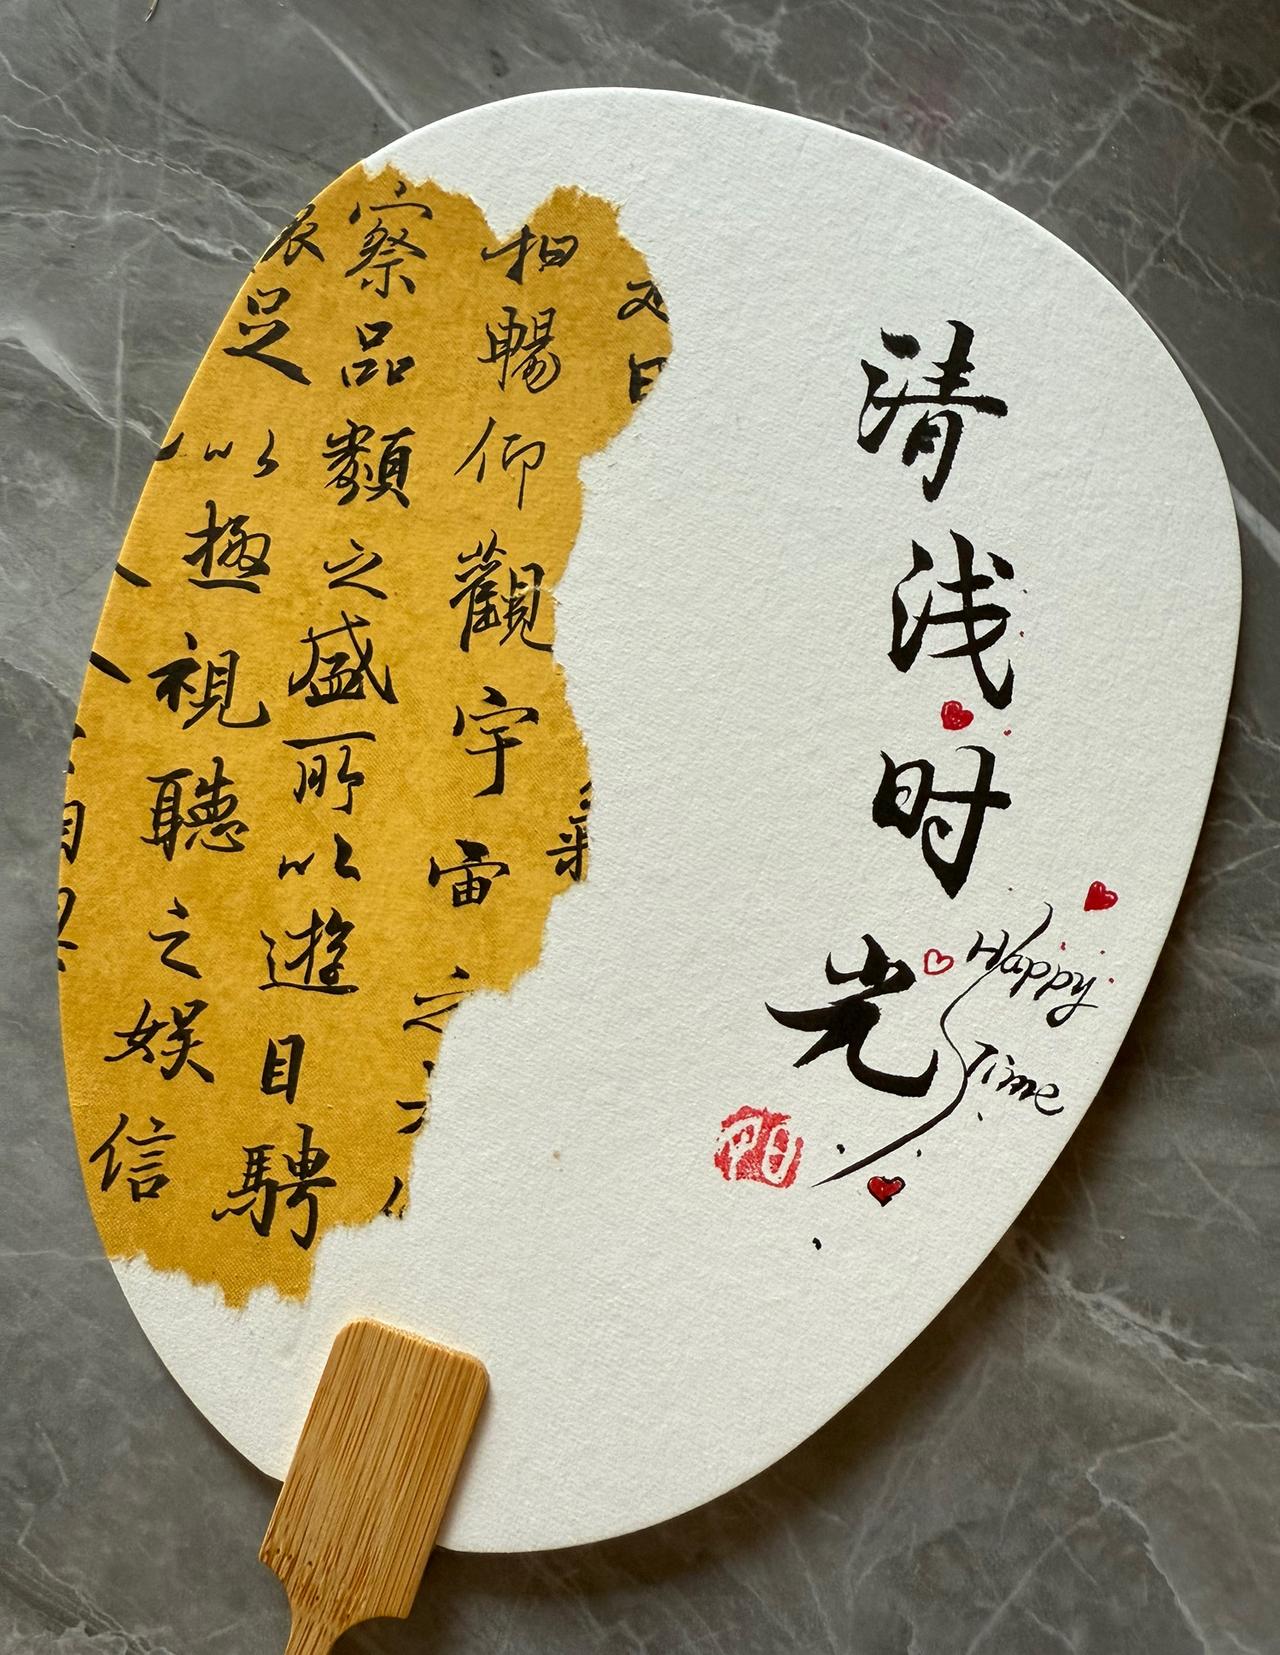 清浅时光
Happy
Time
和暢仰觀宇宙之
察品類之盛所以遊目騁
足以極視聽之娛信